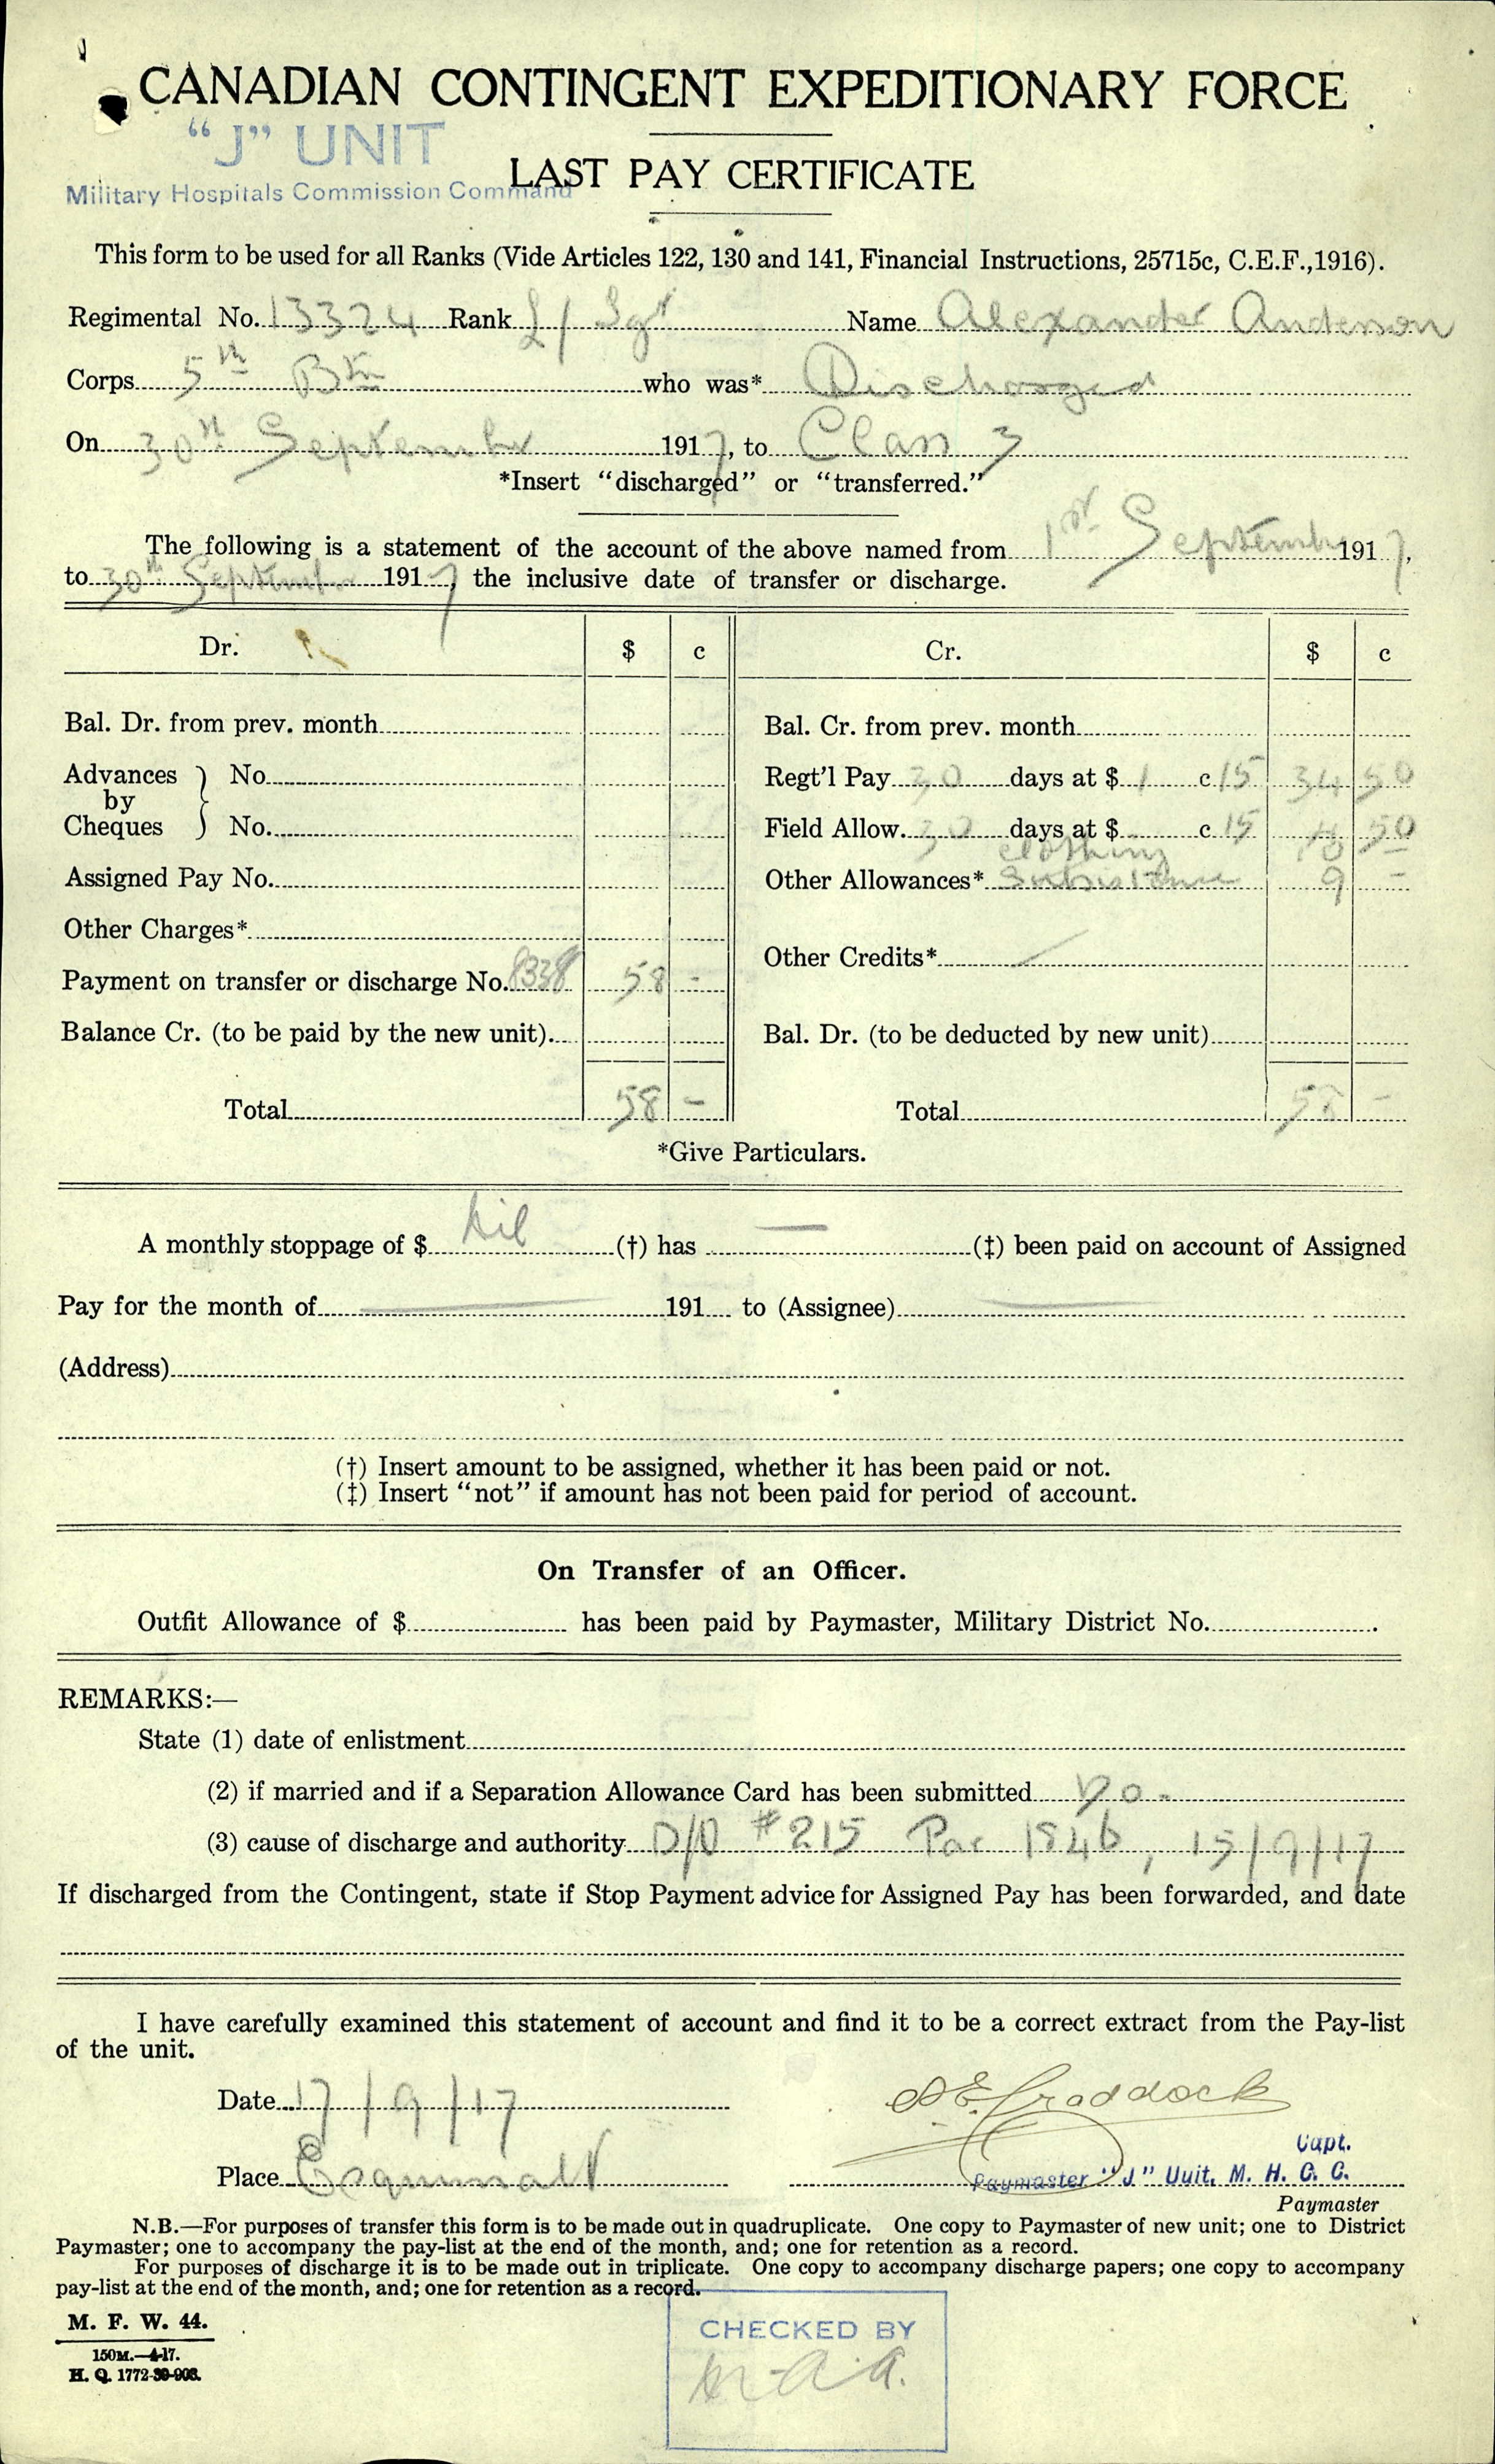 CANADIAN CONTINGENT EXPEDITIONARY FORCE
"J" UNIT
Military Hospitals Commission Command
LAST PAY CERTIFICATE
This form to be used for all Ranks (Vide Articles 122, 130 and 141, Financial Instructions, 25715c, C.E.F., 1916).
Regimental No. 13324 Rank L/Sgt Name Alexander Anderson
Corps 5th Btn who was* Discharged
On 30th September 1917, to Class 3
*Insert "discharged" or "transferred."
The following is a statement of the account of the above named from 1st September 1917,
to 30th September 1917, the inclusive date of transfer or discharge.
Dr. $ c Cr. $ c
Bal. Dr. from prev. month Bal. Cr. from prev. month
Advances by Cheques No. Regt'l Pay 30 days at $ 1 c 15 34 50
No. Field Allow. 30 days at $ c 15 50
clothing
Assigned Pay No. Other Allowances* Subsistance 9 -
Other Charges*
Other Credits*
Payment on transfer or discharge No. 8338 58 -
Balance Cr. (to be paid by the new unit) Bal. Dr. (to be deducted by new unit)
Total 58 - Total 58 -
*Give Particulars.
A monthly stoppage of $ Nil (†) has — (‡) been paid on account of Assigned
Pay for the month of 191 to (Assignee)
(Address)
(†) Insert amount to be assigned, whether it has been paid or not.
(‡) Insert "not" if amount has not been paid for period of account.
On Transfer of an Officer.
Outfit Allowance of $ has been paid by Paymaster, Military District No. .
REMARKS:—
State (1) date of enlistment
(2) if married and if a Separation Allowance Card has been submitted No.
(3) cause of discharge and authority D/O #215 Par 1846, 15/9/17
If discharged from the Contingent, state if Stop Payment advice for Assigned Pay has been forwarded, and date
I have carefully examined this statement of account and find it to be a correct extract from the Pay-list
of the unit.
Date 17/9/17 Craddock
Capt.
Place Esquimalt Paymaster "J" Unit, M. H. C. C.
Paymaster
N.B.—For purposes of transfer this form is to be made out in quadruplicate. One copy to Paymaster of new unit; one to District
Paymaster; one to accompany the pay-list at the end of the month, and; one for retention as a record.
For purposes of discharge it is to be made out in triplicate. One copy to accompany discharge papers; one copy to accompany
pay-list at the end of the month, and; one for retention as a record.
M. F. W. 44.
150M.—4-17.
H. Q. 1772-39-903.
CHECKED BY